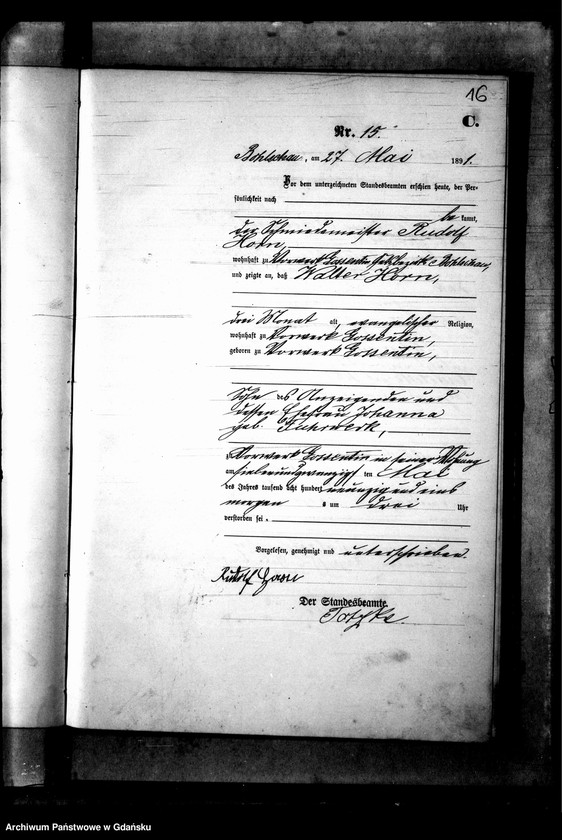 16
C.
Nr. 15.
Bohlschau, am 27. Mai 1891.
Vor dem unterzeichneten Standesbeamten erschien heute, der Per-
sönlichkeit nach
be kannt,
der Schmiedemeister Rudolf
Horn,
wohnhaft zu Vorwerk Gossentin, Bohlschau,
und zeigte an, daß Walter Horn,
drei Monat alt, evangelischer Religion,
wohnhaft zu Vorwerk Gossentin,
geboren zu Vorwerk Gossentin,
Sohn des Anzeigenden und
dessen Ehefrau Johanna
geb. Fuhrwerk,
zu Vorwerk Gossentin in seiner Wohnung
am siebenundzwanzigsten ten Mai
des Jahres tausend acht hundert neunzig und eins
morgen s um drei Uhr
verstorben sei.
Vorgelesen, genehmigt und unterschrieben.
Rudolf Horn
Der Standesbeamte.
Archiwum Państwowe w Gdańsku